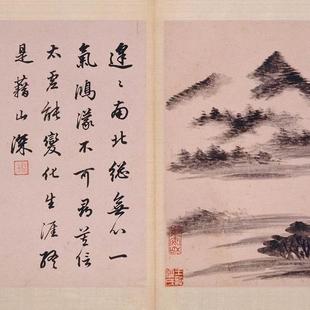 遥〻南北總無心一
氣鴻濛不可尋莫信
太虛能變化生涯終
是藉山深